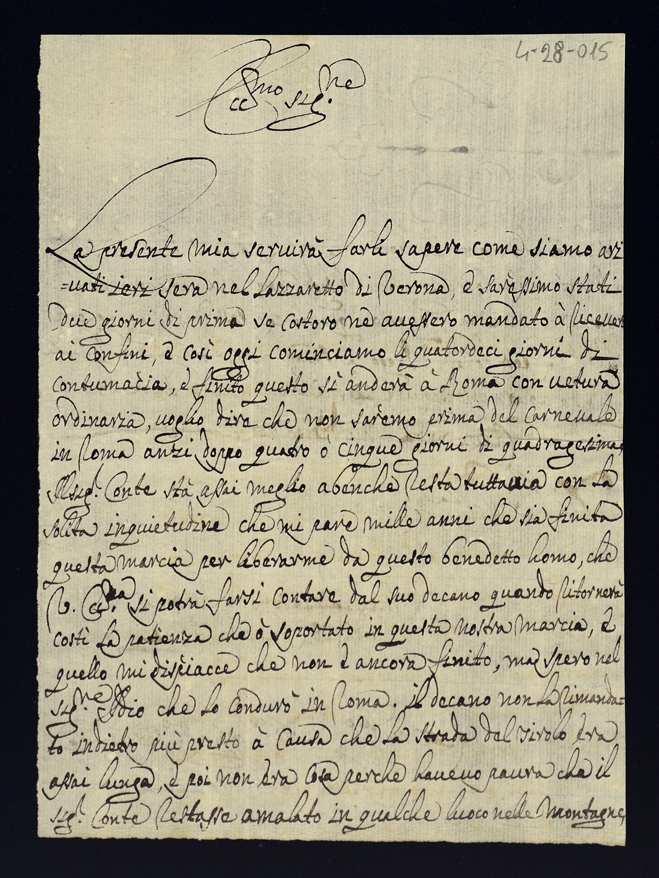 4-28-015
Ecc.mo sig.ne
La presente mia seruirà farli sapere come siamo ari
=uati ieri sera nel Lazzaretto di Verona, è saressimo stati
due giorni di prima se costoro ne auessero mandato à riceuer
ai confini, è così oggi cominciamo li quatordeci giorni di
contumacia, è finito questo si anderà à Roma con uetura
ordinaria, uoglio dire che non saremo prima del Carneuale
in Roma anzi doppo quatro ò cinque giorni di quadragesima,
Il sig.r Conte stà assai meglio abenche resta tuttauia con la
solita inquietudine che mi pare mille anni che sia finita
questa marcia per liberarme da questo benedetto homo, che
V. Ecc.za si potrà farsi contare dal suo decano quando ritornerà
costì la patienza che ò soportato in questa nostra marcia, è
quello mi dispiacce che non è ancora finito, ma spero nel
sig.re Idio che lo condurò in Roma. il decano non la rimanda=
to indietro più presto à causa che la strada del Tirolo era
assai lunga, è poi non era cosa perche haueuo paura che il
sig.r Conte restasse amalato in qualche luoco nelle montagne,